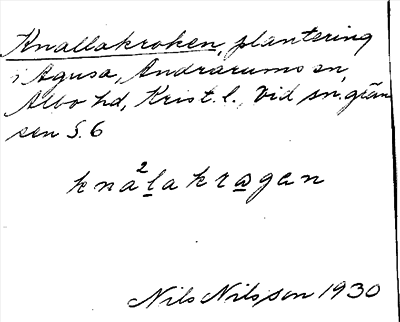 Knallakroken, plantering
i Agusa, Andrarums sn,
Albo hd, Krist. l., Vid sn.grän
sen S. 6
kna²lakrɷgan
Nils Nilsson 1930